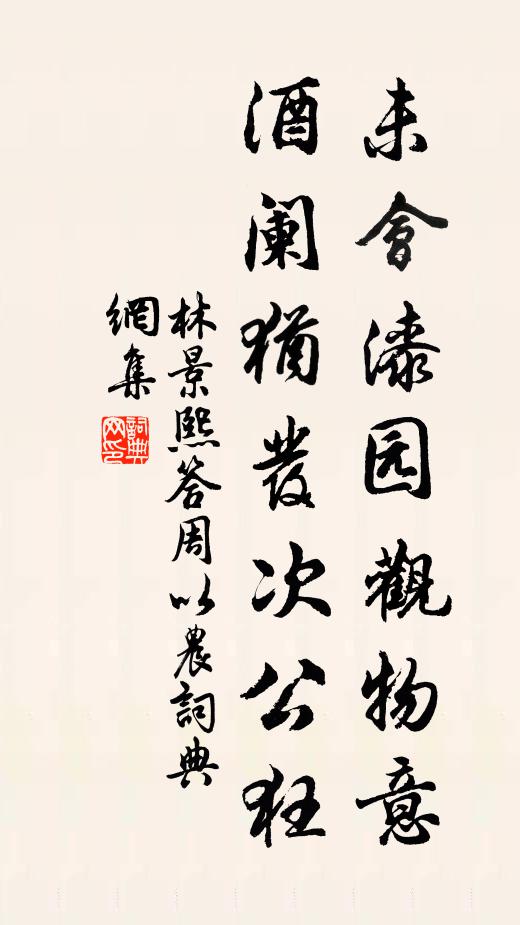 未會漆园觀物意
酒阑猶发次公狂
林景熙答周以農詞典
網集
詞典网印